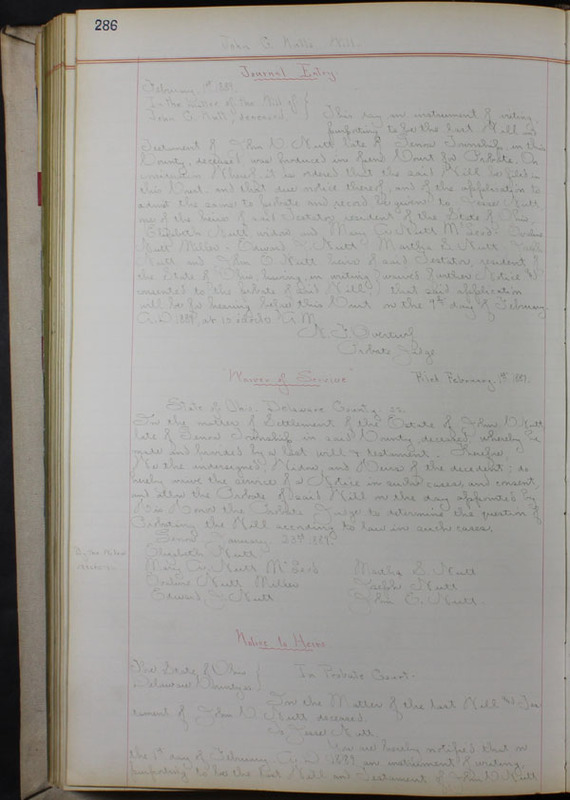 286
John G. Nutt's Will.
Journal Entry.
February 1st 1889.
In the Matter of the Will of
John G. Nutt, deceased.
This day an instrument of writing,
purporting to be the Last Will and
Testament of John D. Nutt late of Genoa Township, in this
County, deceased was produced in open Court for Probate. On
consideration whereof, it is ordered that the said Will be filed in
this Court, and that due notice thereof, and of the application to
admit the same to probate and record be given to Jesse Nutt
one of the heirs of said Testator, resident of the State of Ohio.
Elizabeth Nutt widow and Mary A. Nutt McLeod,
Nutt Miller, Edward J. Nutt, Martha E. Nutt, Joseph
Nutt and John O. Nutt heirs of said Testator, resident of
the State of Ohio, having in writing waived further Notice and
consented to the probate of said Will) that said application
will be for hearing before this Court on the 9th day of February
A.D. 1889, at 10 o'clock A.M.
N. F. Overturf
Probate Judge
"Waiver of Service" Filed February 1st 1889.
State of Ohio, Delaware County, ss.
In the matter of Settlement of the Estate of John D. Nutt
late of Genoa Township in said County deceased, whereby he
made and provided by a last will & testament. Therefore,
We the undersigned Widow, and Heirs of the decedent; do
hereby waive the service of a Notice in such cases, and consent,
and allow the Probate of said Will on the day appointed by
His Honor the Probate Judge to determine the question of
Probating the Will according to law in such cases.
Genoa, January 28th 1889.
Elizabeth Nutt
Mary A. Nutt McLeod Martha E. Nutt
Nutt Miller Joseph Nutt
Edward J. Nutt John O. Nutt
Notice to Heirs
The State of Ohio
Delaware County ss In Probate Court.
In the Matter of the last Will and Tes-
tament of John D. Nutt deceased.
To Jesse Nutt.
You are hereby notified that on
the 1st day of February A.D. 1889 an instrument of writing,
purporting to be the Last Will and Testament of John D. Nutt